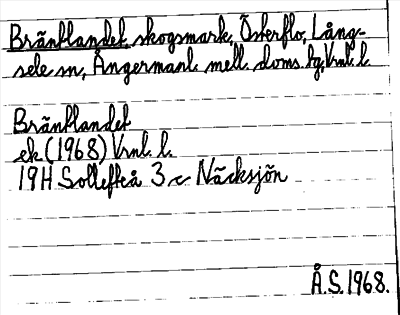 Bräntlandet, skogsmark, Österflo, Lång-
sele sn, Ångermanl. mell. doms. hg, Vnl. l.
Bräntlandet
ek (1968) Vrnl. l.
19H Sollefteå 3 c Näcksjön
Å.S. 1968.